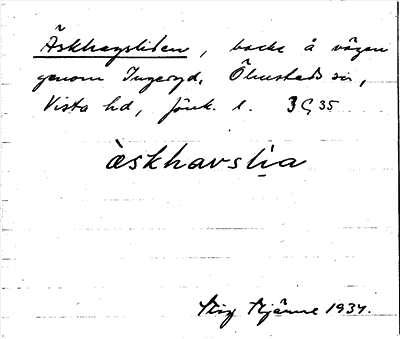 Äskhagsliden, backe å vägen
genom Ingaryd, Ölmstads sn,
Vista hd, Jönk. l. 3 G 35
àskhavsli̤a
Stig Hjärne 1934.